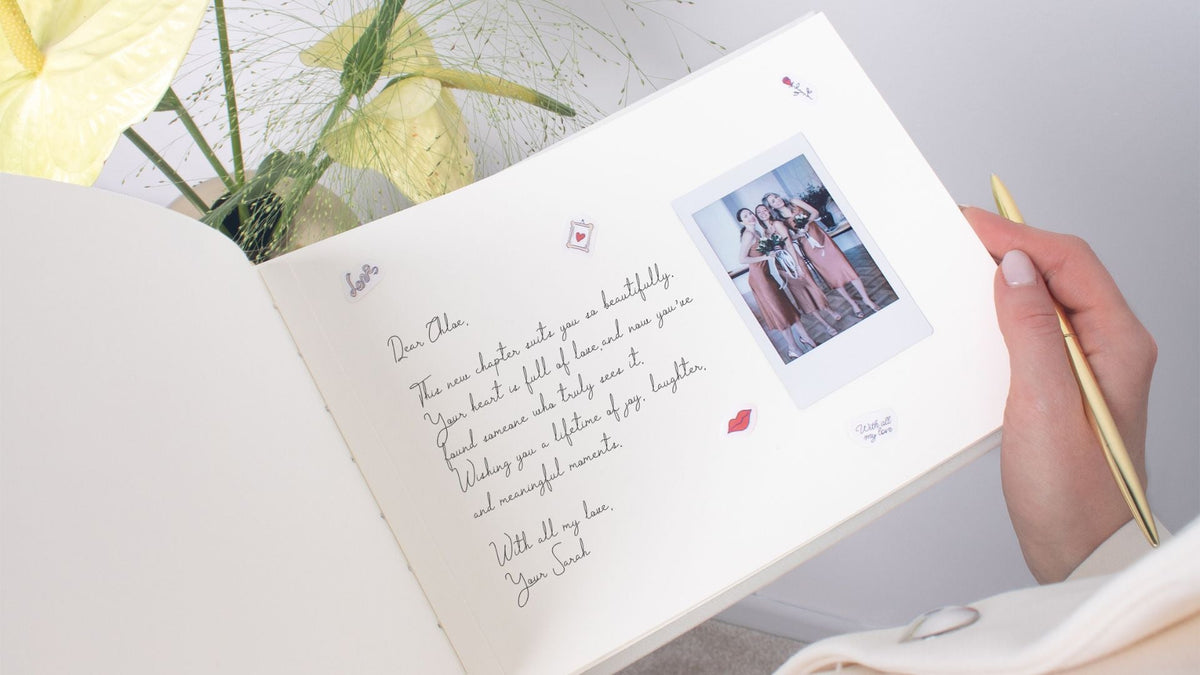 love
Dear Chloe,
This new chapter suits you so beautifully.
Your heart is full of love, and now you've
found someone who truly sees it.
Wishing you a lifetime of joy, laughter,
and meaningful moments.
With all my love,
Your Sarah
With all
my love